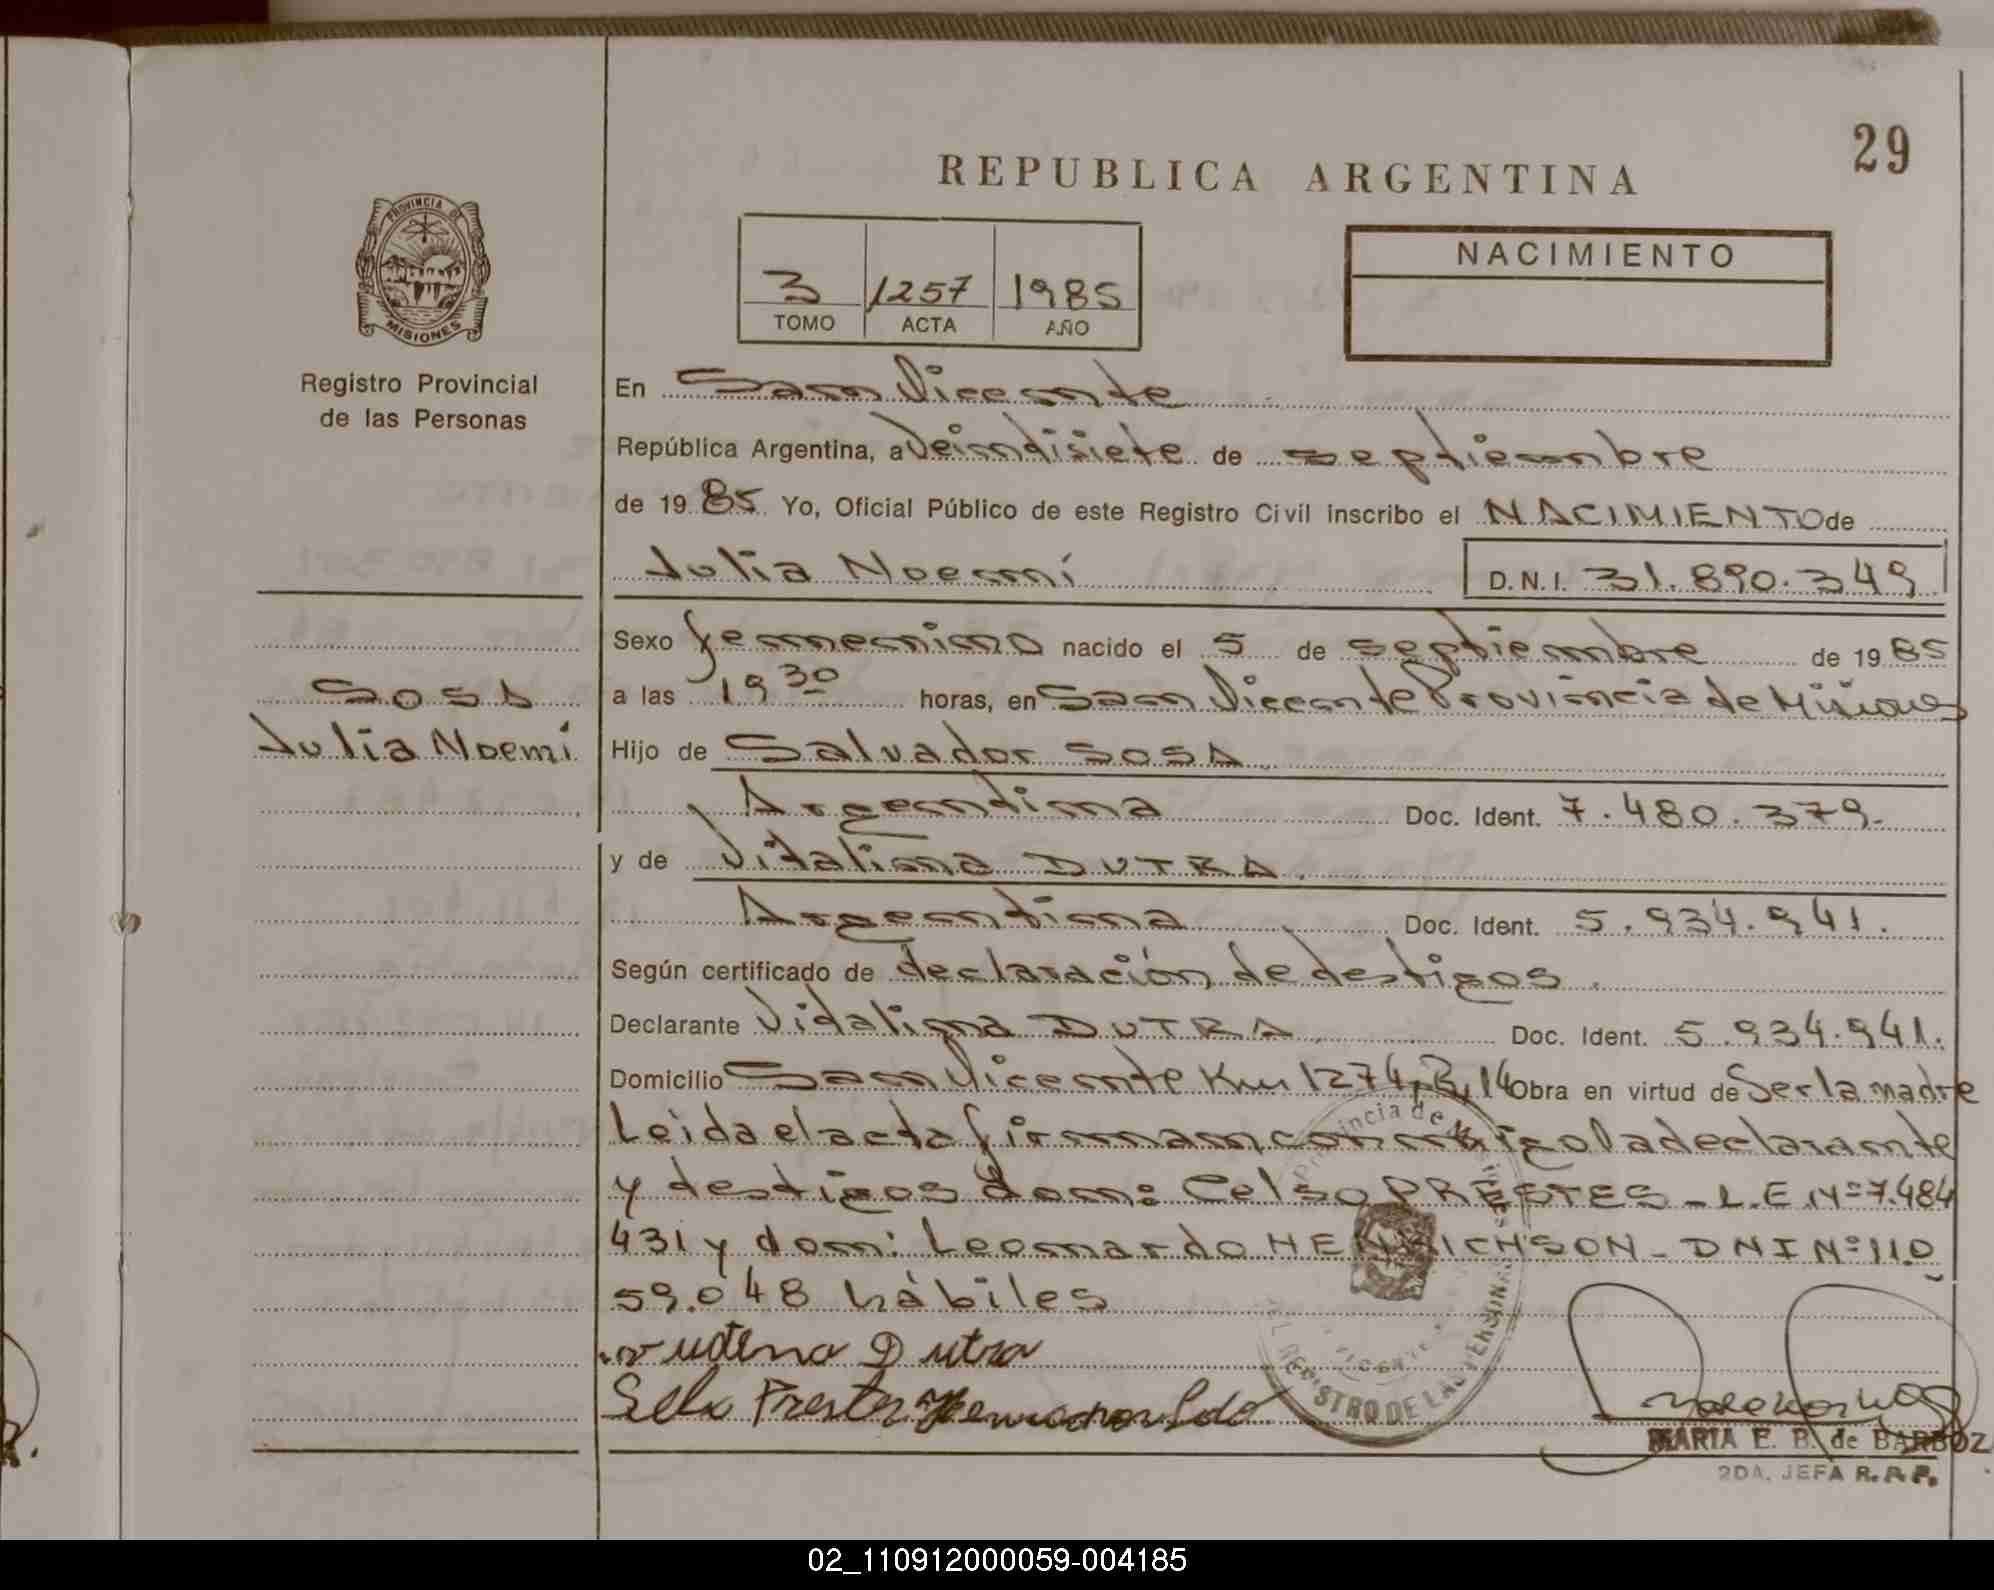 29
REPUBLICA ARGENTINA
PROVINCIA DE
MISIONES
Registro Provincial
de las Personas
3 1257 1985
TOMO ACTA AÑO
NACIMIENTO
En San Vicente
República Argentina, a Veintisiete de septiembre
de 19 85 Yo, Oficial Público de este Registro Civil inscribo el NACIMIENTO de
Julia Noemí D.N.I. 31.890.349
Sexo femenino nacido el 5 de septiembre de 19 85
a las 19 30 horas, en San Vicente Provincia de Misiones
SOSA
Julia Noemí
Hijo de Salvador SOSA
Argentina Doc. Ident. 7.480.379.
y de Vitalina DUTRA.
Argentina Doc. Ident. 5.934.941.
Según certificado de declaración de testigos.
Declarante Vidalina DUTRA Doc. Ident. 5.934.941.
Domicilio San Vicente Km 1274, R, 14 Obra en virtud de Ser la madre
Leida el acta firman conmigo la declarante
y testigos don: Celso PRESTES - L.E. Nº 7.484
431 y don: Leonardo HENRICHSON - DNI Nº 11.0
59.048 hábiles
Dutra
Prestes
Provincia de Misiones
REGISTRO DE LAS PERSONAS
MARIA E. B. de BARBOZ
2DA. JEFA R.P.P.
02_110912000059-004185